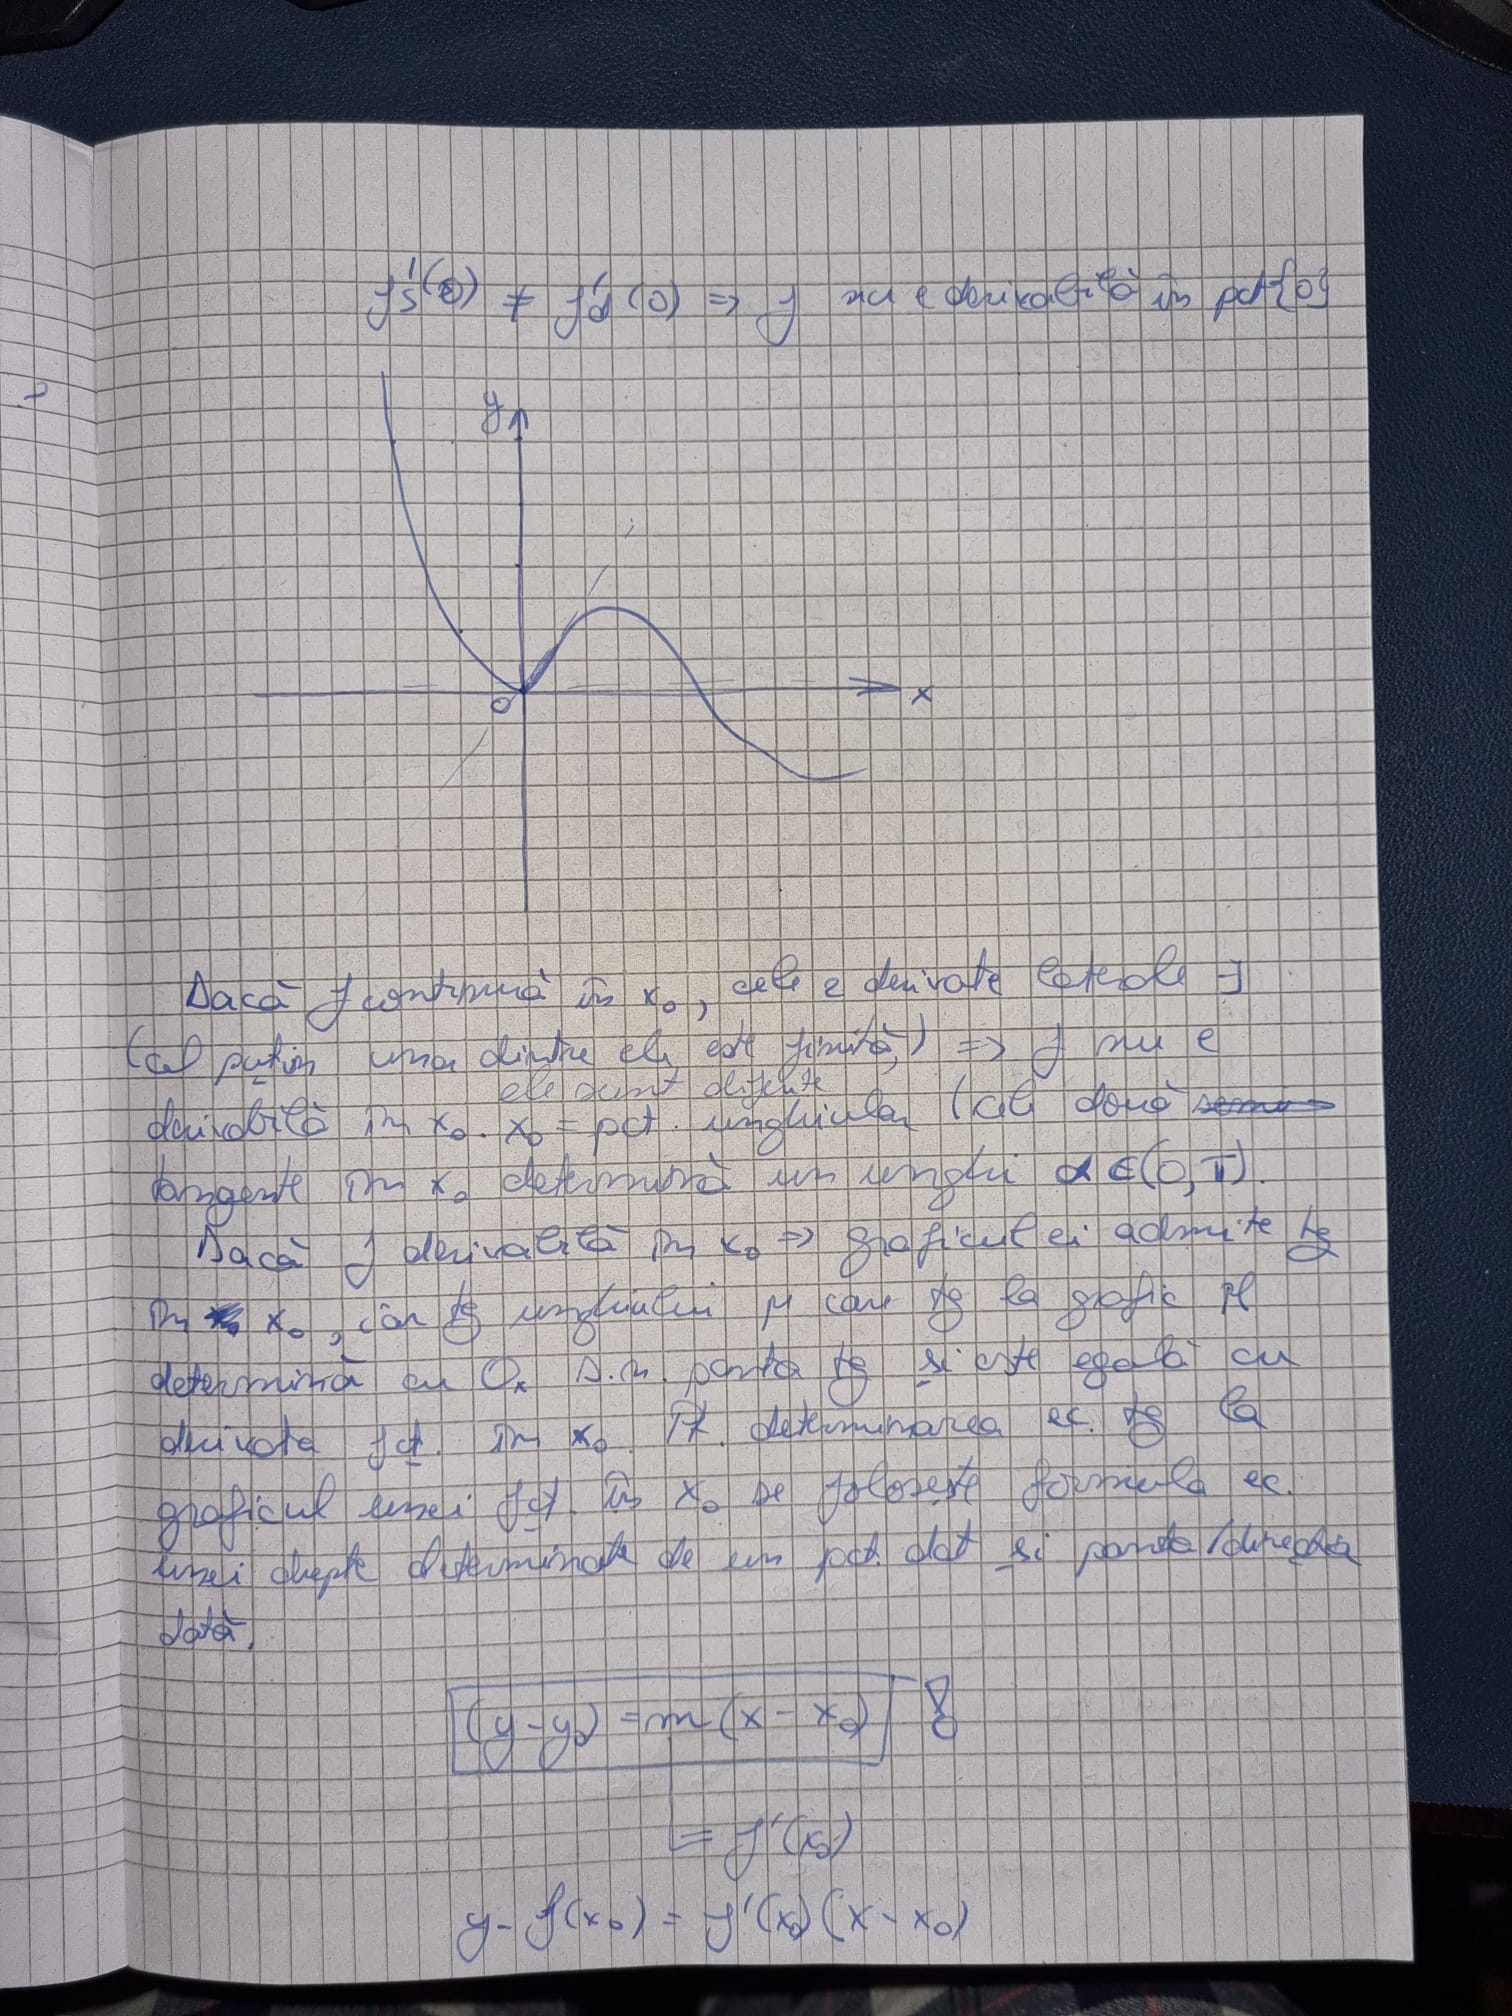 f's(0) ≠ f'd(0) => f nu e derivabilă în pct{0}
y
O
x
Dacă f continuă în x₀, cele 2 derivate laterale ∃
(cel puțin una dintre ele este finită,) => f nu e
ele sunt diferite
derivabilă în x₀. x₀ = pct. unghiular (cele două
tangente în x₀ determină un unghi α ∈ (0, π).
Dacă f derivabilă în x₀ => graficul ei admite tg
în x₀, iar tg unghiului pe care tg la grafic îl
determină cu Ox s.n. panta tg și este egală cu
derivata fcț. în x₀. Pt. determinarea ec. tg la
graficul unei fcț. în x₀ se folosește formula ec.
unei drepte determinate de un pct. dat și panta/direcția
dată.
(y-y₀) = m(x - x₀) !
= f'(x₀)
y - f(x₀) = f'(x₀)(x - x₀)